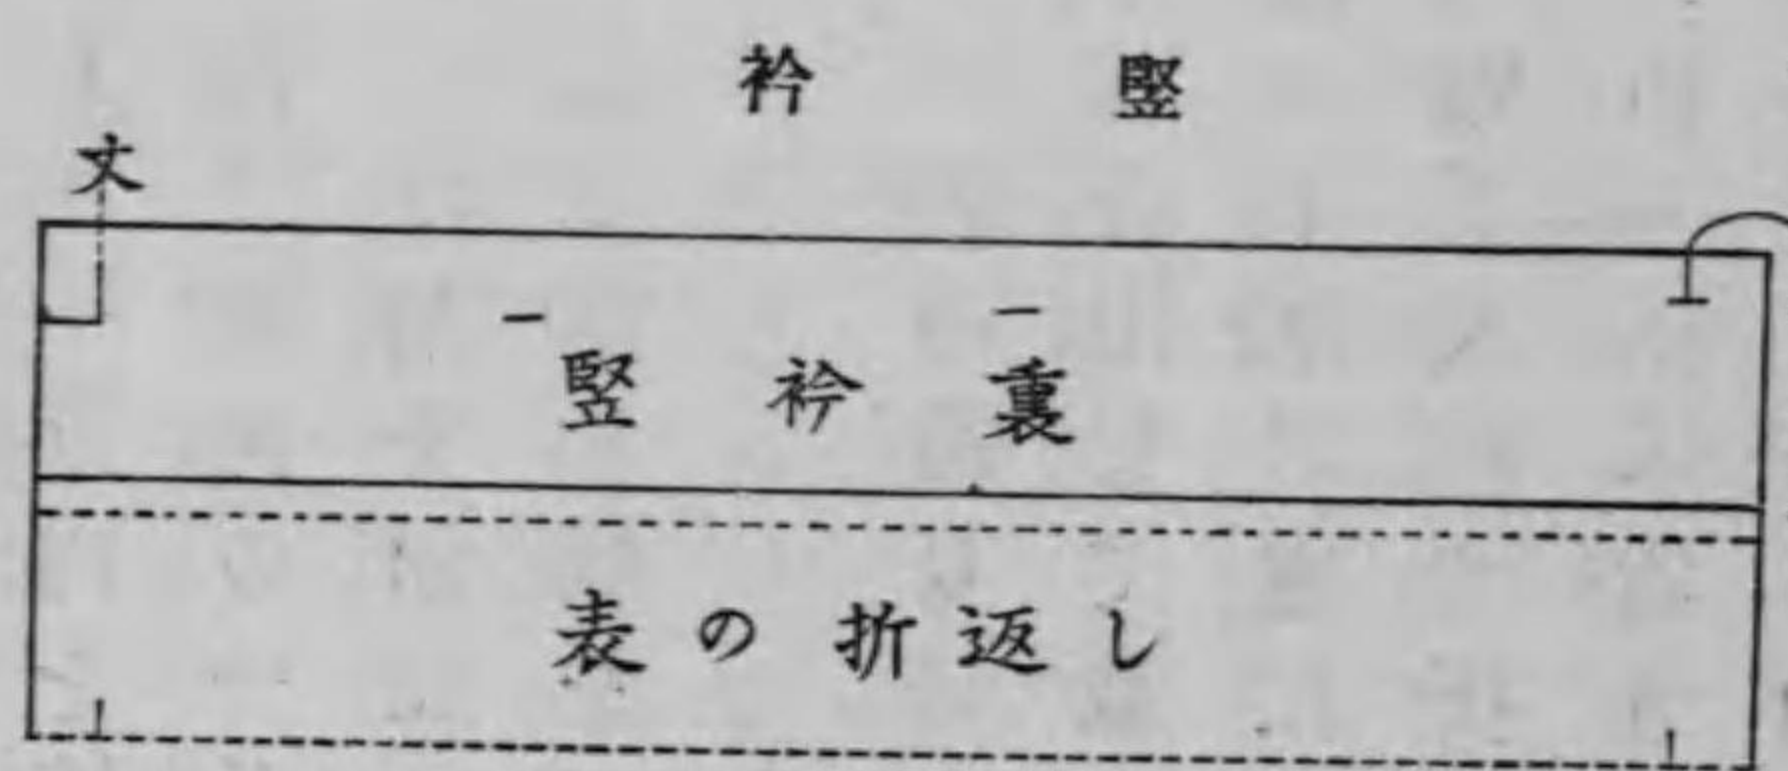 竪衿
丈
竪衿裏
表の折返し